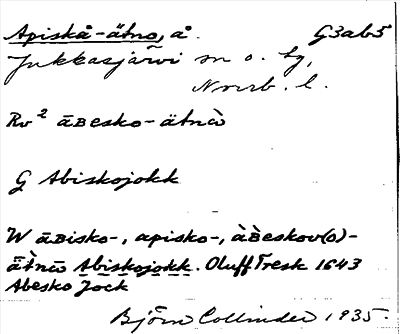 Apiskå-ätno, å. G3ab5
Jukkasjärvi sn o. tg,
Norrb. l.
Rv² āʙesko-ätnω̄
G Abiskojokk
W āʙisko-, apisko-, ὰʙ̀eskov(o)-
ä̀t̀nω̄ Abiskojokk. Oluff Tresk 1643
Abesko Jock
Björn Collinder 1935.